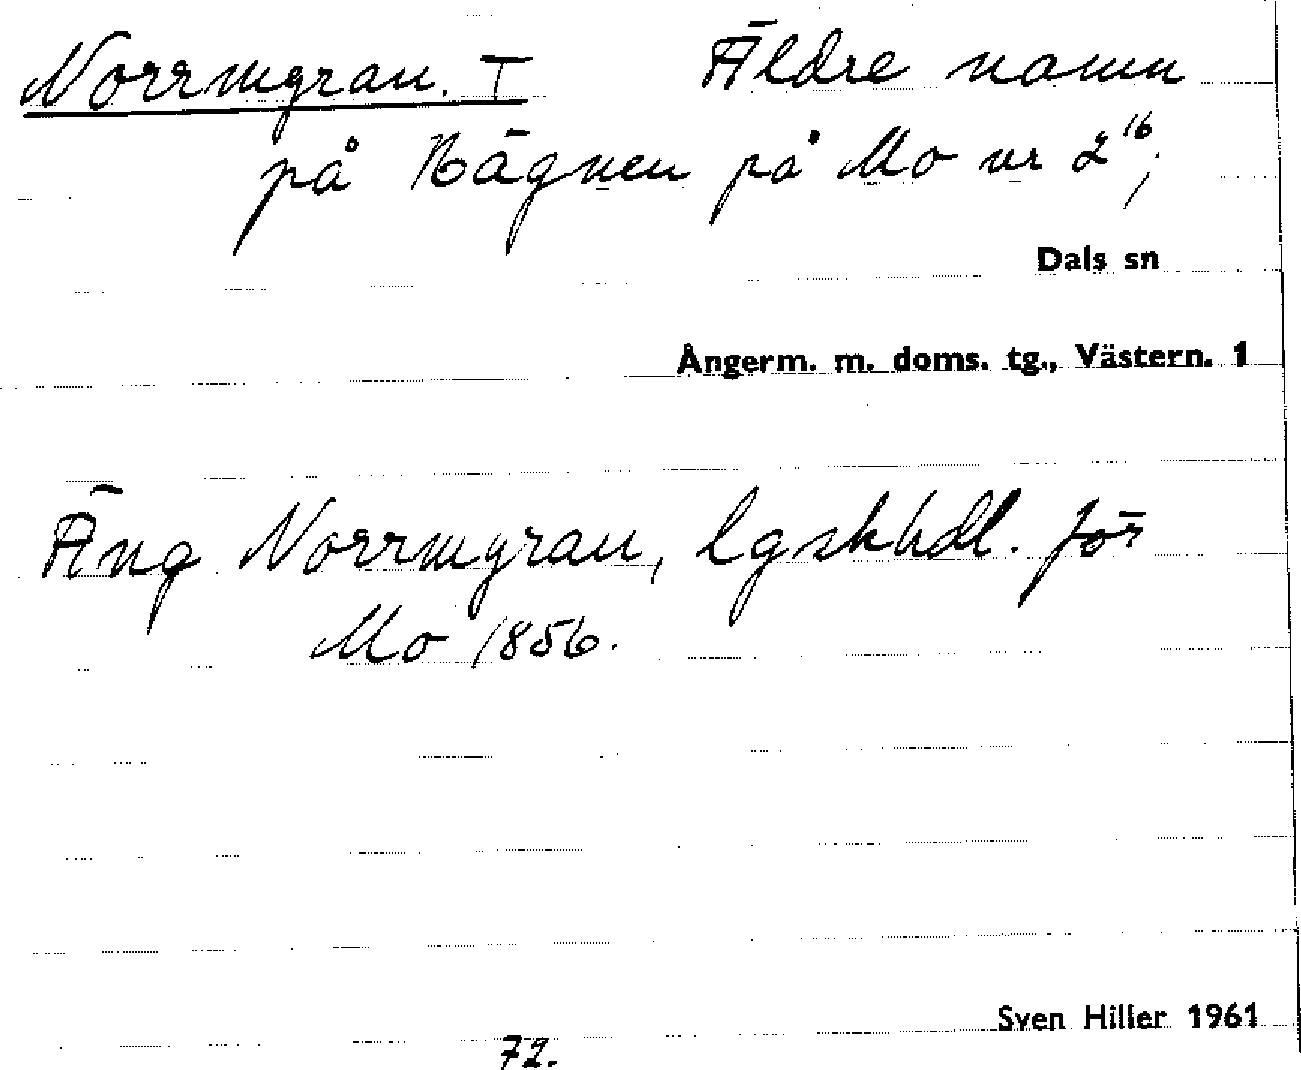 Norrmyran. I Äldre namn
på Rågnen på Mo nr 2¹⁶;
Dals sn
Ångerm. m. doms. tg., Västern. 1
Äng Norrmyran, lgskhdl. för
Mo 1856.
Sven Hiller 1961
72.